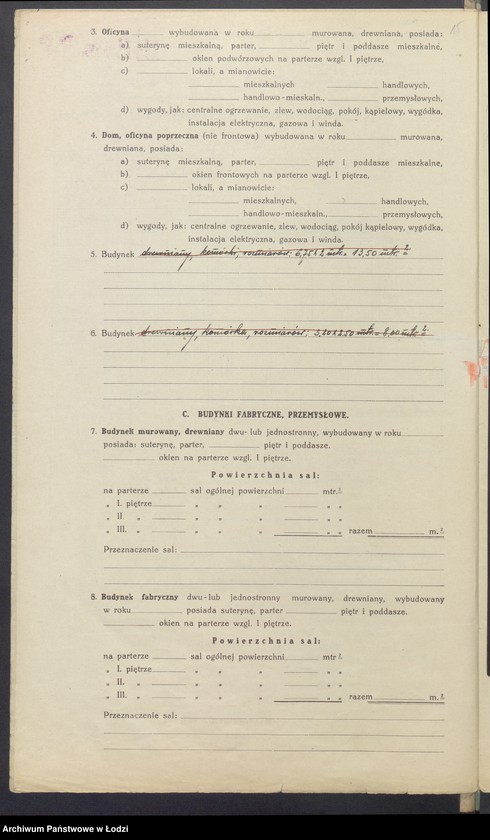 3. Oficyna ______ wybudowana w roku ______ murowana, drewniana, posiada:
a) suterynę mieszkalną, parter, ______ piętr i poddasze mieszkalne,
b) ______ okien podwórzowych na parterze wzgl. I piętrze,
c) ______ lokali, a mianowicie:
______ mieszkalnych ______ handlowych,
______ handlowo-mieskaln., ______ przemysłowych,
d) wygody, jak: centralne ogrzewanie, zlew, wodociąg, pokój, kąpielowy, wygódka,
instalacja elektryczna, gazowa i winda.
4. Dom, oficyna poprzeczna (nie frontowa) wybudowana w roku ______ murowana,
drewniana, posiada:
a) suterynę mieszkalną, parter, ______ piętr i poddasze mieszkalne,
b) ______ okien frontowych na parterze wzgl. I piętrze,
c) ______ lokali, a mianowicie:
______ mieszkalnych, ______ handlowych,
______ handlowo-mieszkaln., ______ przemysłowych,
d) wygody, jak: centralne ogrzewanie, zlew, wodociąg, pokój, kąpielowy, wygódka,
instalacja elektryczna, gazowa i winda.
5. Budynek drewniany, komórki, rozmiarów: 6,75 x 2 mtr. = 13,50 mtr. 2
6. Budynek drewniany, komórka, rozmiarów: mtr. = mtr. 2
C. BUDYNKI FABRYCZNE, PRZEMYSŁOWE.
7. Budynek murowany, drewniany dwu- lub jednostronny, wybudowany w roku ______
posiada: suterynę, parter, ______ piętr i poddasze.
______ okien na parterze wzgl. I piętrze.
Powierzchnia sal:
na parterze ______ sal ogólnej powierzchni ______ mtr.²
„ I. piętrze ______ „ „ „ ______ „ „
„ II. „ ______ „ „ „ ______ „ „
„ III. „ ______ „ „ „ ______ „ „ razem ______ m.²
Przeznaczenie sal:
8. Budynek fabryczny dwu-lub jednostronny murowany, drewniany, wybudowany
w roku ______ posiada suterynę, parter ______ piętr i poddasze.
______ okien na parterze wzgl. I piętrze.
Powierzchnia sal:
na parterze ______ sal ogólnej powierzchni ______ mtr.²
„ I. piętrze ______ „ „ „ ______ „ „
„ II. „ ______ „ „ „ ______ „ „
„ III. „ ______ „ „ „ ______ „ „ razem ______ m.²
Przeznaczenie sal:
Archiwum Państwowe w Łodzi